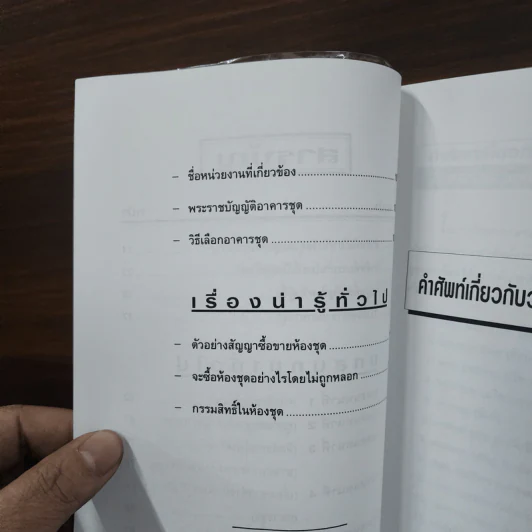 – ชื่อหน่วยงานที่เกี่ยวข้อง
– พระราชบัญญัติอาคารชุด
– วิธีเลือกอาคารชุด
เรื่องน่ารู้ทั่วไป
– ตัวอย่างสัญญาซื้อขายห้องชุด
– จะซื้อห้องชุดอย่างไรโดยไม่ถูกหลอก
– กรรมสิทธิ์ในห้องชุด
คำศัพท์เกี่ยวกับ